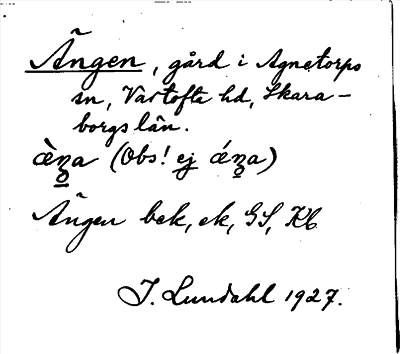 Ängen, gård i Agnetorps
sn, Vartofta hd, Skara-
borgs län.
æ̀ŋa (Obs! ej ǽŋa)
Ängen bek, ek, GS, Kb
I. Lundahl 1927.